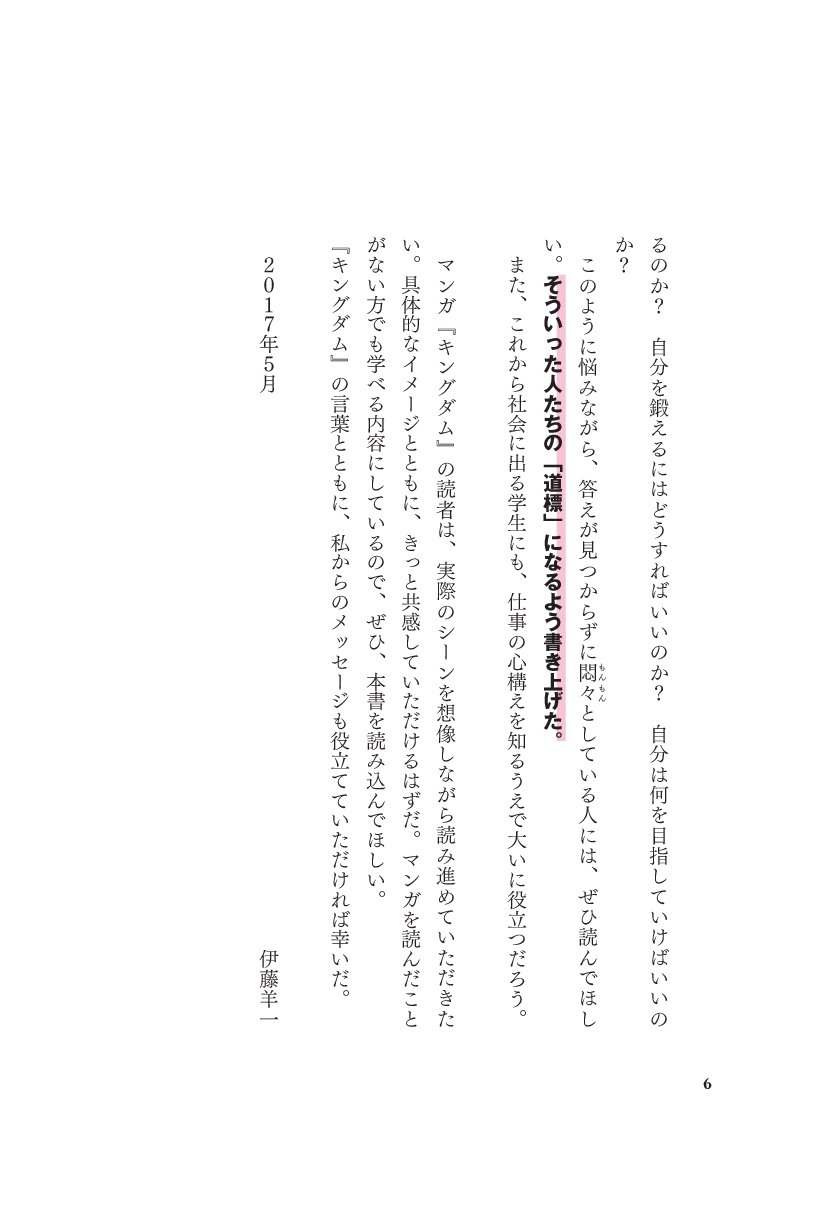 るのか？　自分を鍛えるにはどうすればいいのか？　自分は何を目指していけばいいの
か？
　このように悩みながら、答えが見つからずに悶々としている人には、ぜひ読んでほし
もんもん
い。そういった人たちの「道標」になるよう書き上げた。
　また、これから社会に出る学生にも、仕事の心構えを知るうえで大いに役立つだろう。
　マンガ『キングダム』の読者は、実際のシーンを想像しながら読み進めていただきた
い。具体的なイメージとともに、きっと共感していただけるはずだ。マンガを読んだこと
がない方でも学べる内容にしているので、ぜひ、本書を読み込んでほしい。
『キングダム』の言葉とともに、私からのメッセージも役立てていただければ幸いだ。
2017年5月
伊藤羊一
6